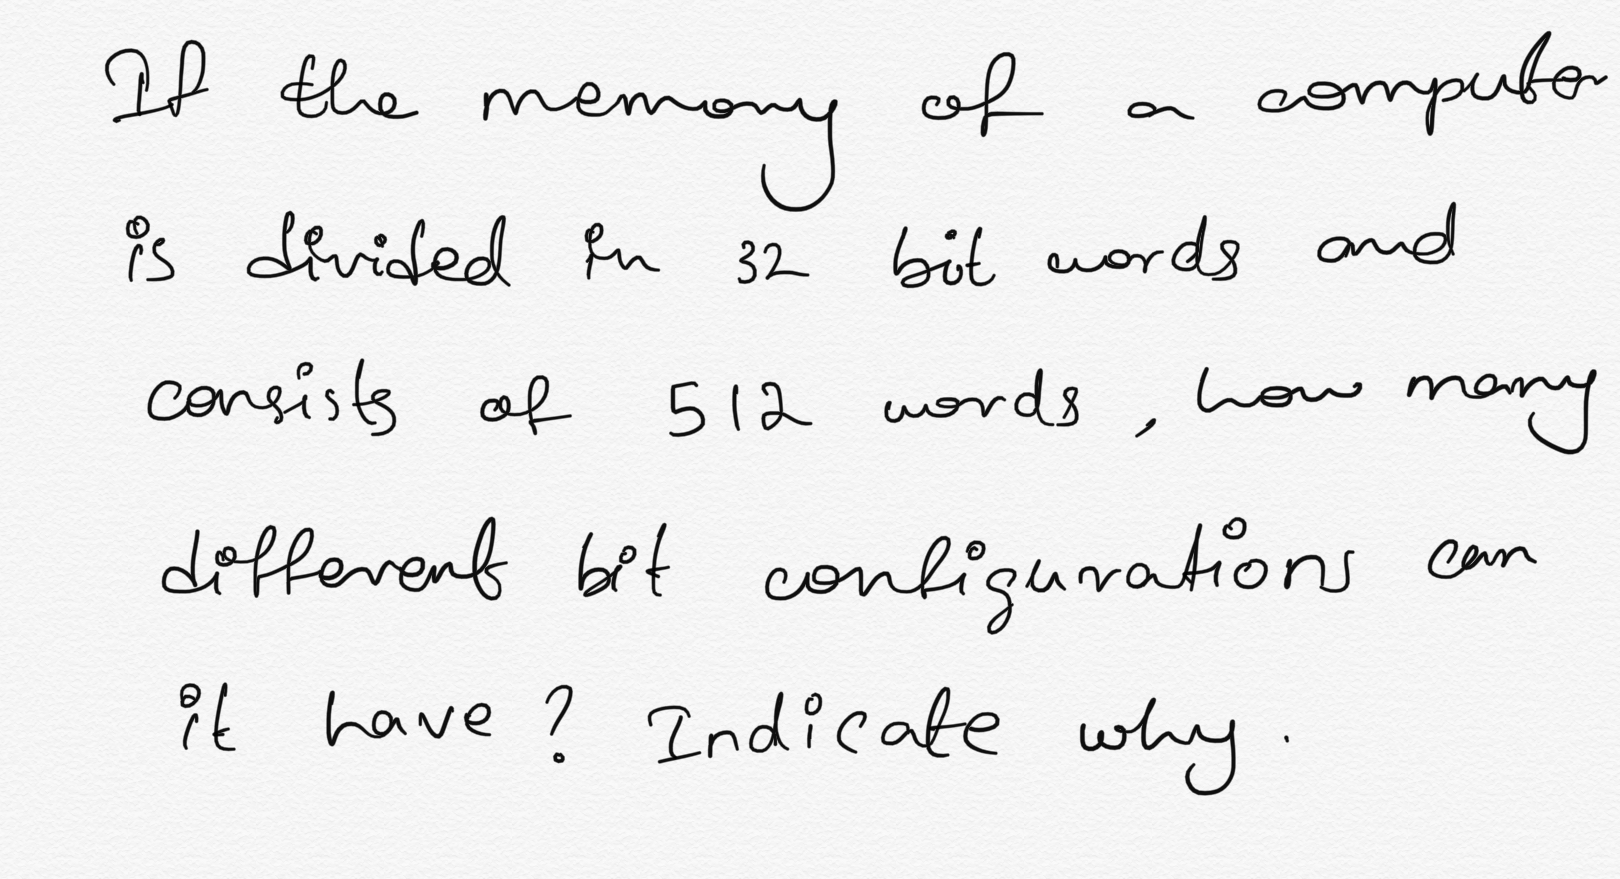 If the memory of a computer
is divided in 32 bit words and
consists of 512 words, how many
different bit configurations can
it have? Indicate why.